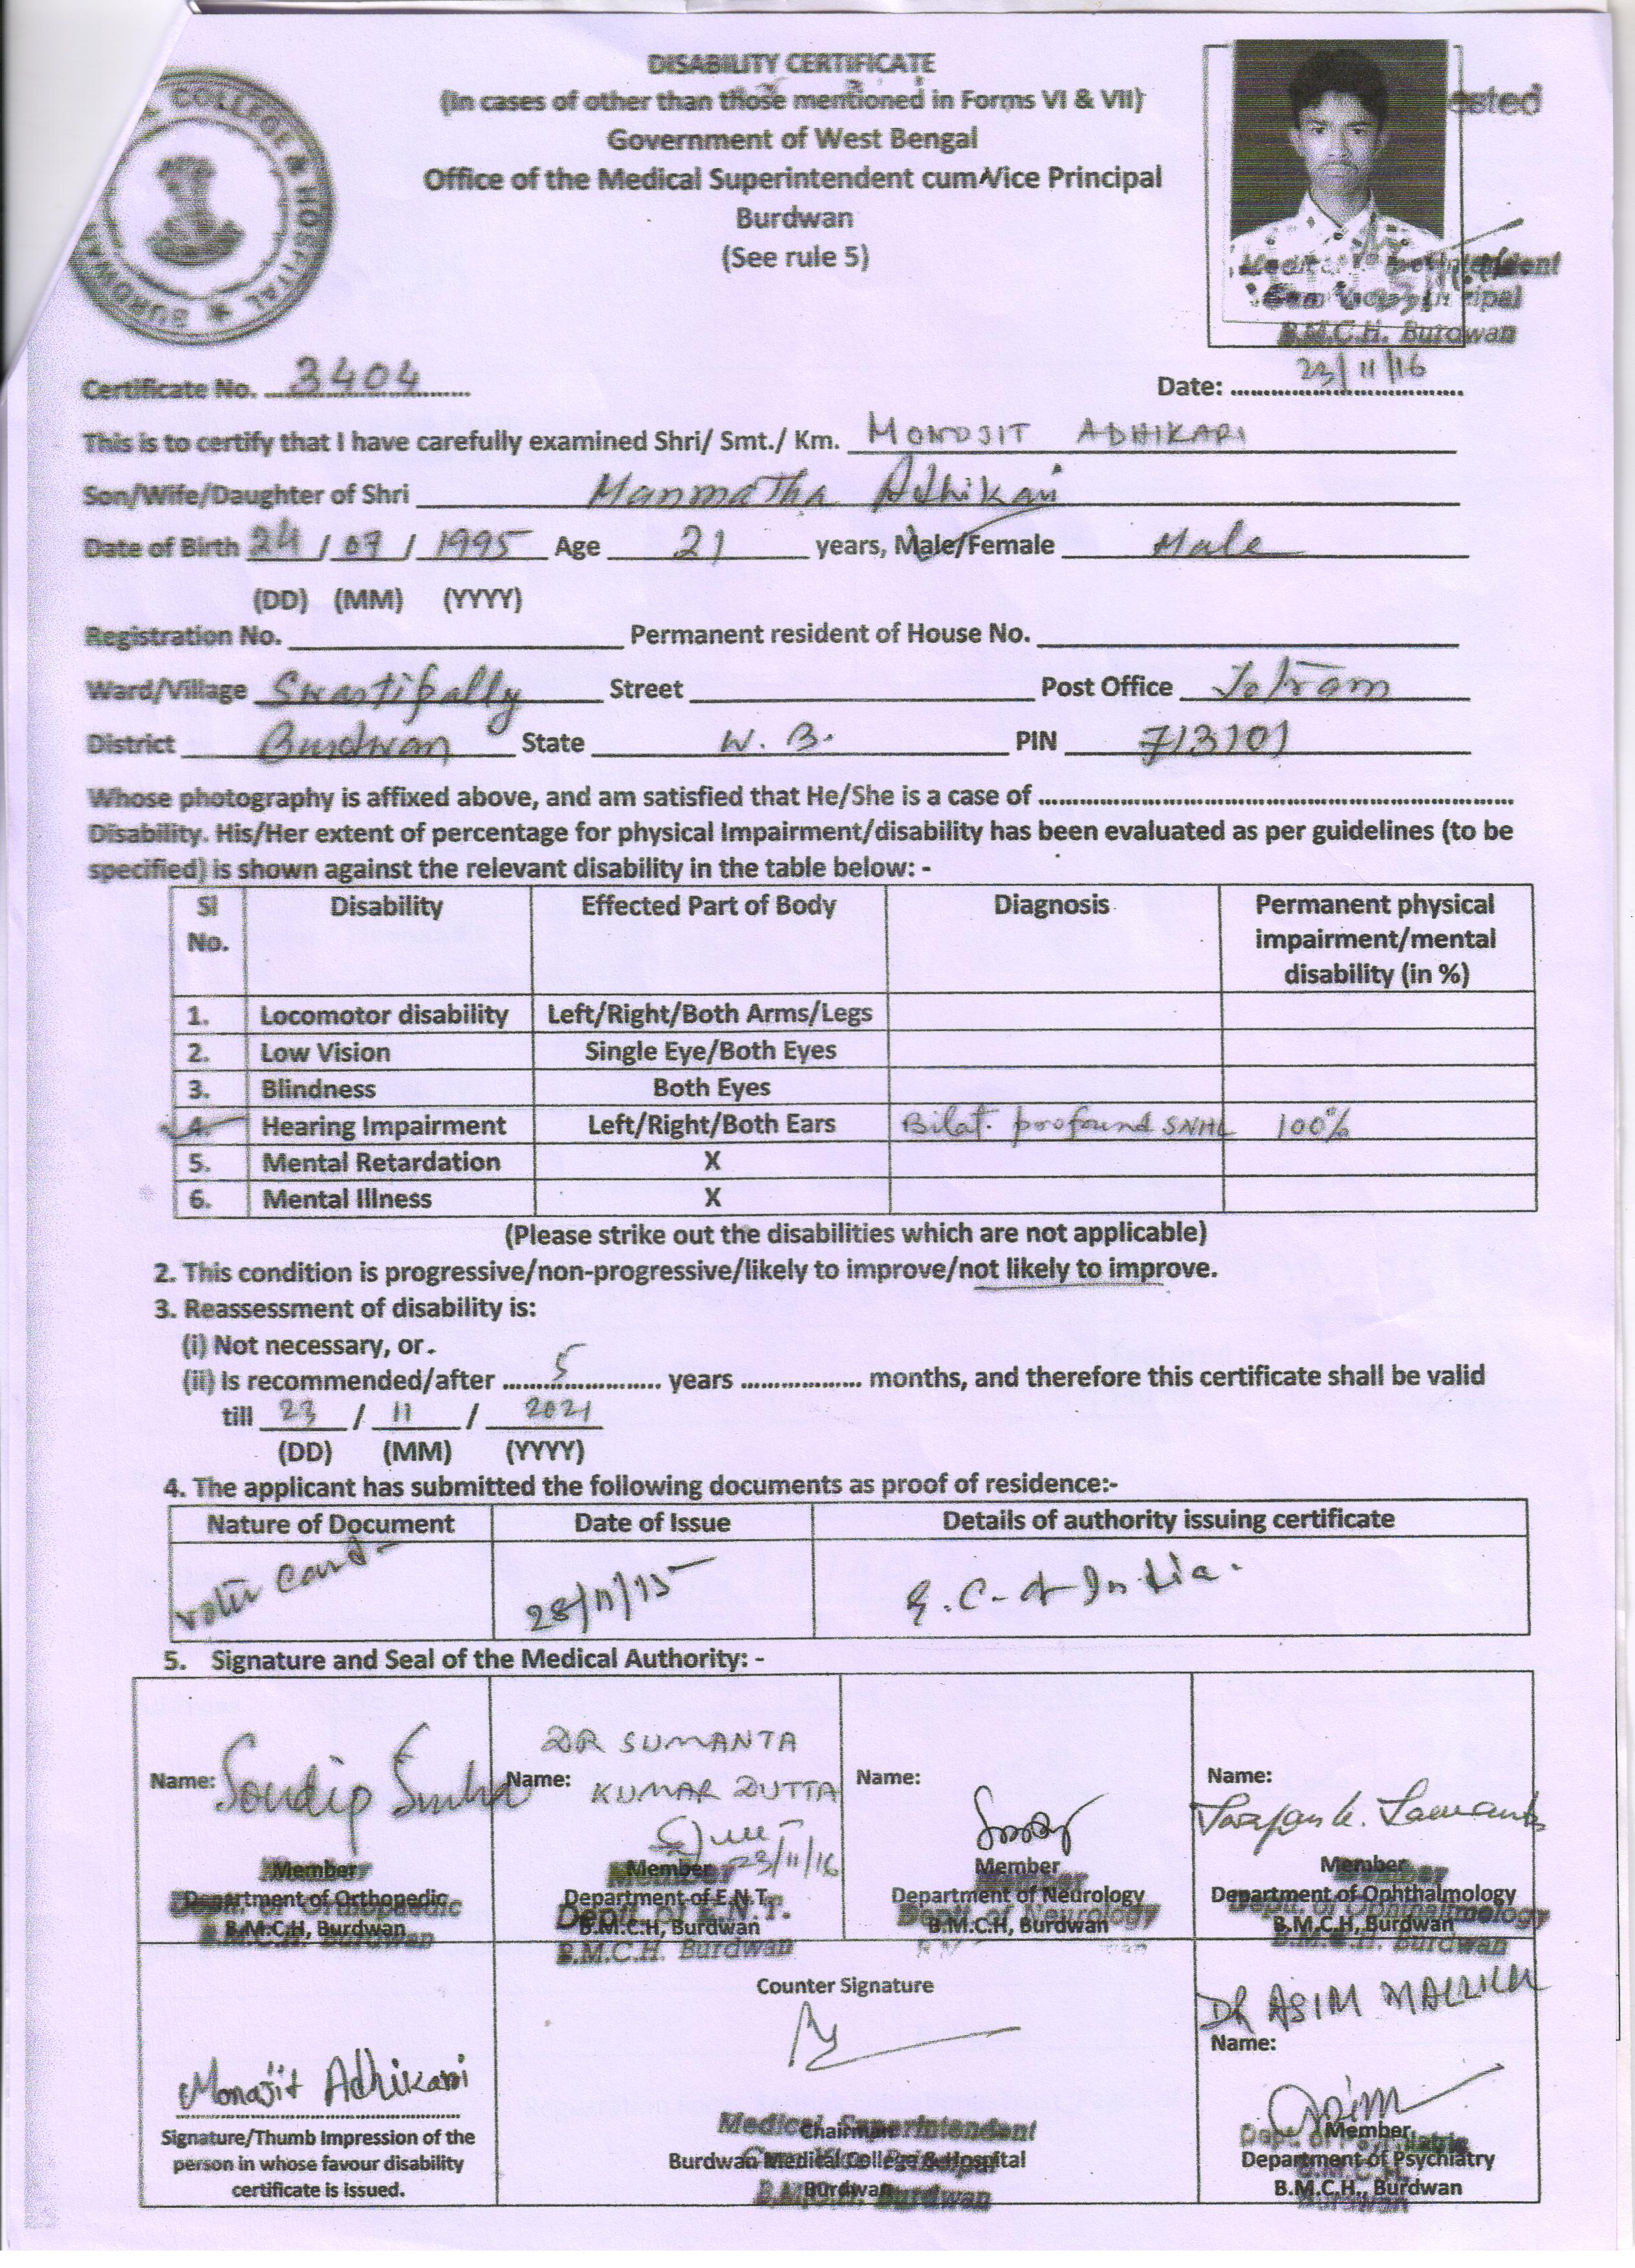 DISABILITY CERTIFICATE
(In cases of other than those mentioned in Forms VI & VII)
Government of West Bengal
Office of the Medical Superintendent cum Vice Principal
Burdwan
(See rule 5)
COLLEGE & HOSPITAL ★ BURDWA
ested
B.M.C.H. Burdwan
Certificate No. 3404 Date: 23/11/16
This is to certify that I have carefully examined Shri/ Smt./ Km. MONOJIT ADHIKARI
Son/Wife/Daughter of Shri Manmatha Adhikari
Date of Birth 24 / 07 / 1995 Age 21 years, Male/Female Male
(DD) (MM) (YYYY)
Registration No. Permanent resident of House No.
Ward/Village Swastipally Street Post Office Jotram
District Burdwan State W. B. PIN 713101
Whose photography is affixed above, and am satisfied that He/She is a case of
Disability. His/Her extent of percentage for physical Impairment/disability has been evaluated as per guidelines (to be
specified) is shown against the relevant disability in the table below: -
Sl No. Disability Effected Part of Body Diagnosis Permanent physical impairment/mental disability (in %)
1. Locomotor disability Left/Right/Both Arms/Legs
2. Low Vision Single Eye/Both Eyes
3. Blindness Both Eyes
4. Hearing Impairment Left/Right/Both Ears Bilat. profound SNHL 100%
5. Mental Retardation X
6. Mental Illness X
(Please strike out the disabilities which are not applicable)
2. This condition is progressive/non-progressive/likely to improve/not likely to improve.
3. Reassessment of disability is:
(i) Not necessary, or.
(ii) Is recommended/after 5 years months, and therefore this certificate shall be valid
till 23 / 11 / 2021
(DD) (MM) (YYYY)
4. The applicant has submitted the following documents as proof of residence:-
Nature of Document Date of Issue Details of authority issuing certificate
Voter card 28/11/15 E.C. of India.
5. Signature and Seal of the Medical Authority: -
DR SUMANTA
Name: Name: KUMAR DUTTA Name: Name:
23/11/16
Member Member Member Member
Department of Orthopedic Department of E.N.T. Department of Neurology Department of Ophthalmology
B.M.C.H, Burdwan B.M.C.H, Burdwan B.M.C.H, Burdwan B.M.C.H, Burdwan
B.M.C.H. Burdwan B.M.C.H. Burdwan B.M.C.H. Burdwan
Counter Signature
DR ASIM MALLICK
Name:
Monajit Adhikari
Signature/Thumb Impression of the
person in whose favour disability
certificate is issued.
Medical Superintendent
Chairman
Burdwan Medical College & Hospital
Burdwan
Member
Department of Psychiatry
B.M.C.H., Burdwan